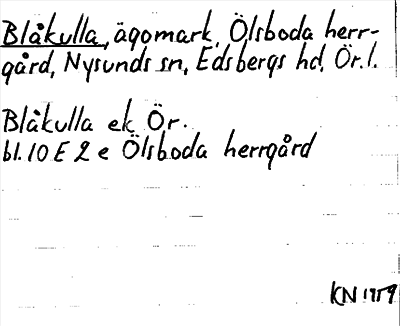 Blåkulla, ägomark, Ölsboda herr-
gård, Nysunds sn, Edsbergs hd, Ör. l.
Blåkulla ek Ör.
bl. 10 E 2 e Ölsboda herrgård
KN 1959